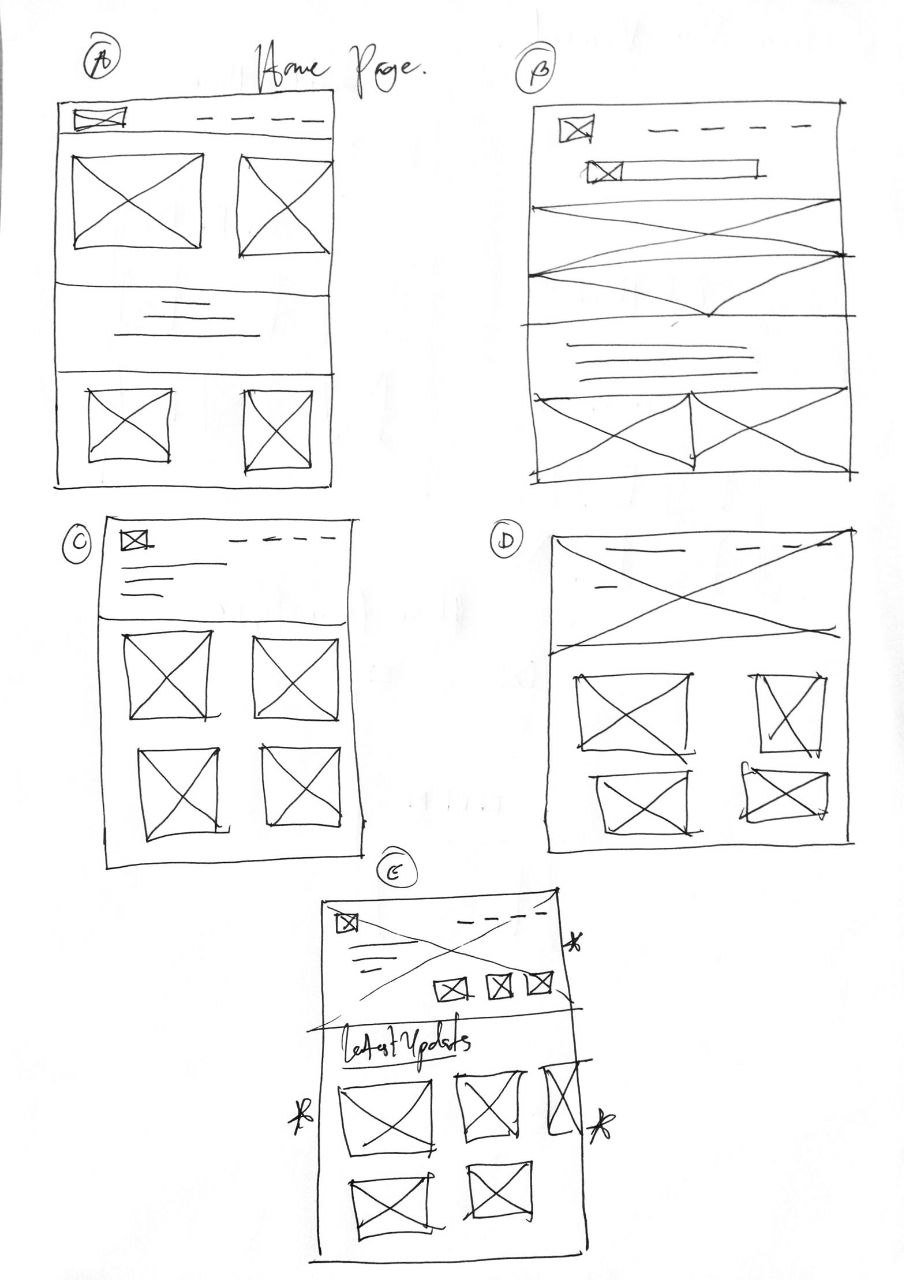 A
Home Page.
B
C
D
E
Latest Updates